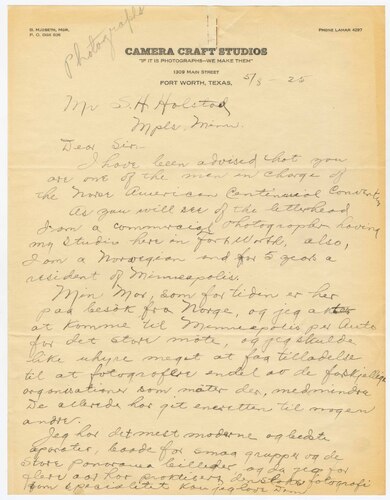 Photographs
S. MJOSETH, MGR.
P. O. BOX 636
PHONE LAMAR 4297
CAMERA CRAFT STUDIOS
"IF IT IS PHOTOGRAPHS—WE MAKE THEM"
1309 MAIN STREET
FORT WORTH, TEXAS, 5/8 - 25
Mr S. H. Holstad
Mpls. Minn.
Dear Sir:-
I have been advised that you
are one of the men in charge of
the Norse American Centennial Conventn
As you will see of the letterhead
I am a commercial Photographer having
my Studio here in Fort Worth, also,
I am a Norwegian and for 5 years a
resident of Minneapolis.
Men Mor, som for tiden er her
paa besök fra Norge, og jeg akter
at komme til Minneapolis per Auto
for det store möte, og jeg skulde
like uhyre meget at faa tilladelse
til at fotografere endel av de forskjellige
organisationer som möter der, medmindre
De allerede har git eneretten til nogen
andre.
Jeg har det mest moderne og bedste
aparater, baade for smaa grupper og de
store panorama billeder, og da jeg for
flere aar har praktisert den slags fotografi
som specialitet kan jeg love Dem